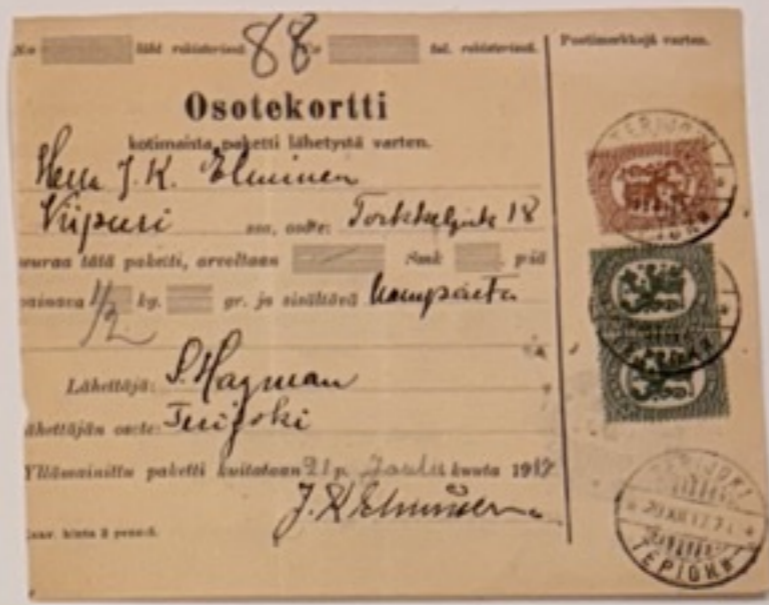 N:o läht. rekisterissä. 88 N:o tul. rekisterissä.
Postimerkkejä varten.
Osotekortti
kotimaista paketti lähetystä varten.
Herra J. K. Elminen
Viipuri ssa, osote: 18
seuraa tätä paketti, arvoltaan Smk p:iä
painava 1/2 kg. gr. ja sisältävä
Lähettäjä: S. Hagman
Lähettäjän osote: Terijoki
Yllämainittu paketti kuitataan 21 p. Joulu kuuta 1917
J. K. Elminen
hinta 2 penniä.
TERIJOKI
ТЕРІОКИ
TERIJOKI
20.XII.17
ТЕРІОКИ